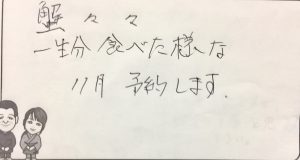 蟹々々
一生分食べた様な
11月 予約します.